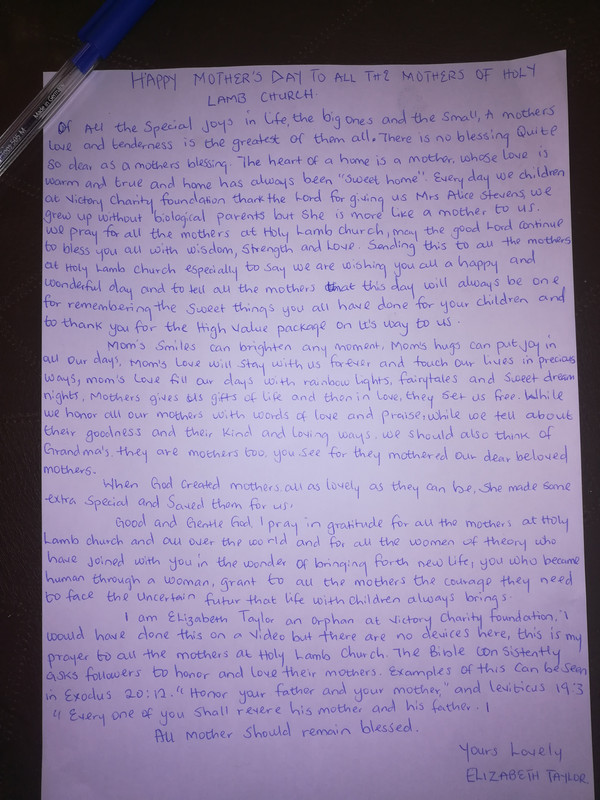 HAPPY MOTHER'S DAY TO ALL THE MOTHERS OF HOLY
LAMB CHURCH.
Of All the Special Joys in life, the big ones and the small, A mothers
love and tenderness is the greatest of them all. There is no blessing Quite
So dear as a mothers blessing. The heart of a home is a mother, whose love is
warm and true and home has always been "Sweet home". Every day we children
at Victory Charity foundation thank the Lord for giving us Mrs Alice Stevens, we
grew up without biological parents but She is more like a mother to us.
we pray for all the mothers at Holy Lamb church, may the good Lord continue
to bless you all with wisdom, Strength and Love. Sanding this to all the mothers
at Holy Lamb church especially to say we are wishing you all a happy and
wonderful day and to tell all the mothers that this day will always be one
for remembering the Sweet things you all have done for your children and
to thank you for the High Value package on It's way to us.
Mom's Smiles can brighten any moment, Mom's hugs can put joy in
all Our days, Mom's Love will Stay with us forever and touch Our lives in precious
Ways, mom's Love fill Our days with rainbow lights, fairytales and Sweet dream
nights, Mothers gives Us gifts of life and then in Love, they Set us free. While
we honor all our mothers with words of love and praise, while we tell about
their goodness and their Kind and loving ways. we should also think of
Grandma's, they are mothers too, you see for they mothered Our dear beloved
mothers.
When God created mothers, all as lovely as they can be, She made Some
extra Special and Saved them for us.
Good and Gentle God, I pray in gratitude for all the mothers at Holy
Lamb church and all over the world and for all the women of theory who
have joined with you in the wonder of bringing forth new life, you who became
human through a woman, grant to all the mothers the courage they need
to face the Uncertain futur that life with Children always brings.
I am Elizabeth Taylor an Orphan at Victory Charity foundation, I
would have done this on a Video but there are no devices here, this is my
prayer to all the mothers at Holy Lamb Church. The Bible Consistently
asks followers to honor and love their mothers. Examples of this Can be Seen
in Exodus 20:12. "Honor your father and your mother," and leviticus 19:3
"Every one of you Shall revere his mother and his father. 1
All Mother Should remain blessed.
Yours Lovely
ELIZABETH TAYLOR